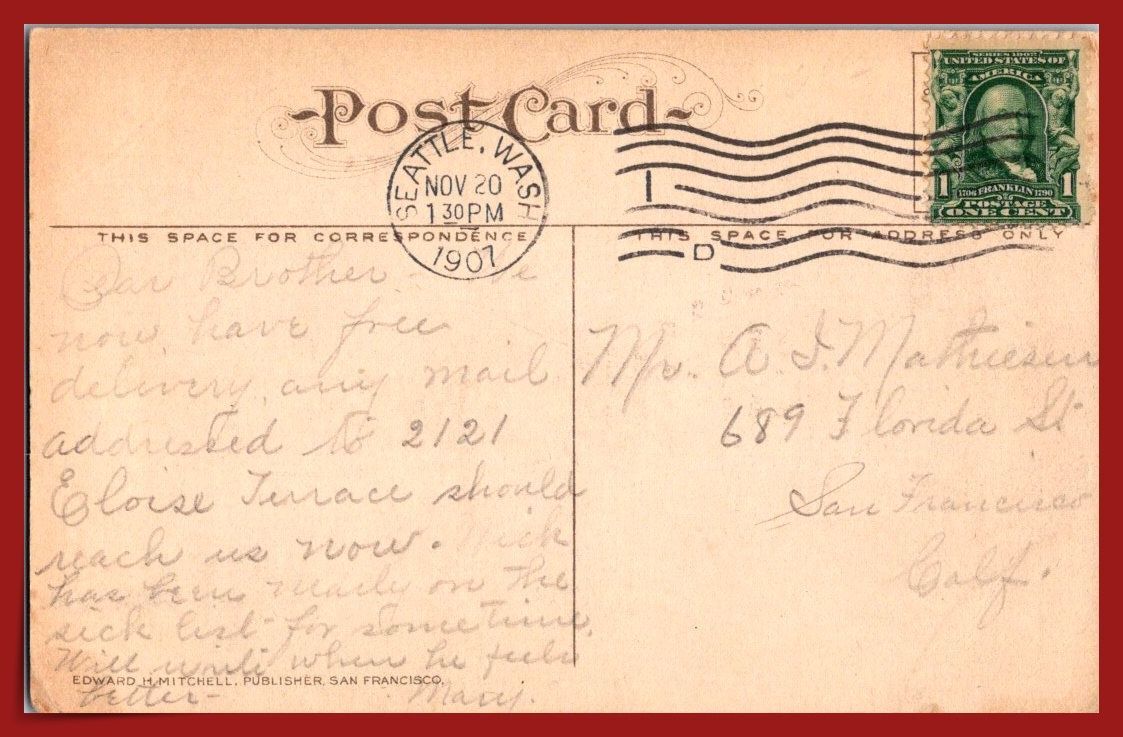 Post Card
SERIES 1902
UNITED STATES OF
AMERICA
1 1706 FRANKLIN 1790 1
POSTAGE
ONE CENT
SEATTLE, WASH
NOV 20
1 30 PM
1907
1
D
THIS SPACE FOR CORRESPONDENCE
THIS SPACE FOR ADDRESS ONLY
Dear Brother - We
now have free
delivery, any mail
addressed to 2121
Eloise Terrace should
reach us now. Nick
has been nearly on the
sick list for sometime.
Will write when he feels
better - Mary.
EDWARD H. MITCHELL, PUBLISHER, SAN FRANCISCO.
Mr. A. I. Mathiesen
689 Florida St
San Francisco
Calif.